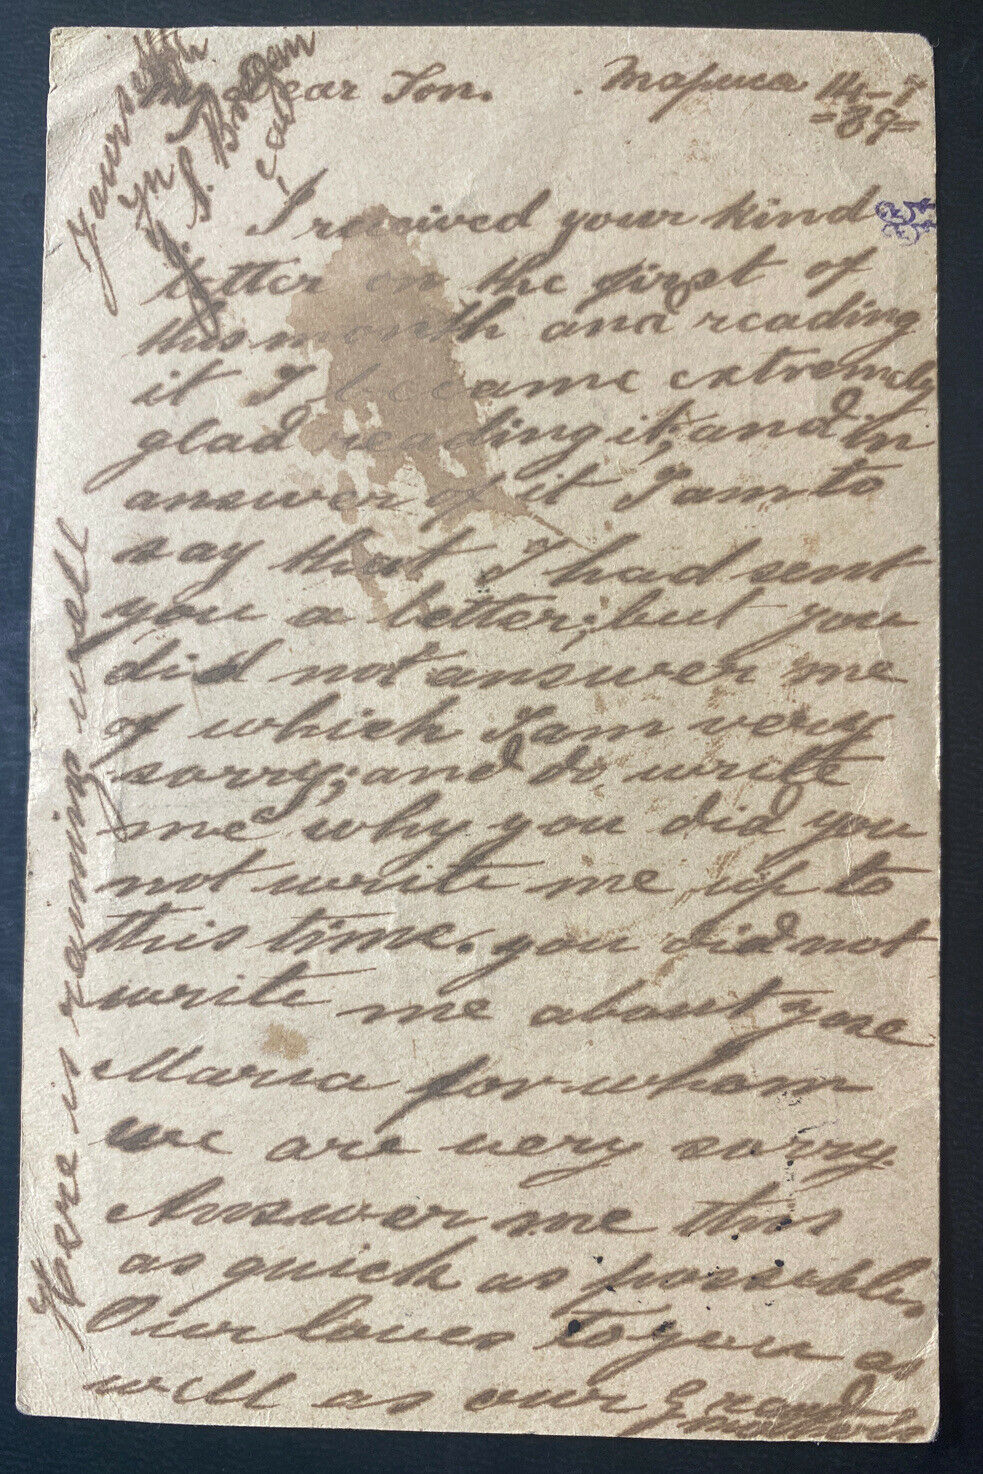 My dear Ton. Mapuca 14-7
=89=
I received your kind
letter on the first of
this month and reading
it I became extremely
glad reading it; and in
answer of it I am to
say that I had sent
you a letter; but you
did not answer me
of which I am very
sorry; and do write
me why you did you
not write me up to
this time. you did not
write me about your
Maria for whom
we are very sorry.
Answer me this
as quick as possible,
Our loves to you as
well as our Grand
mother
Here is raining well
Yours
J. S.